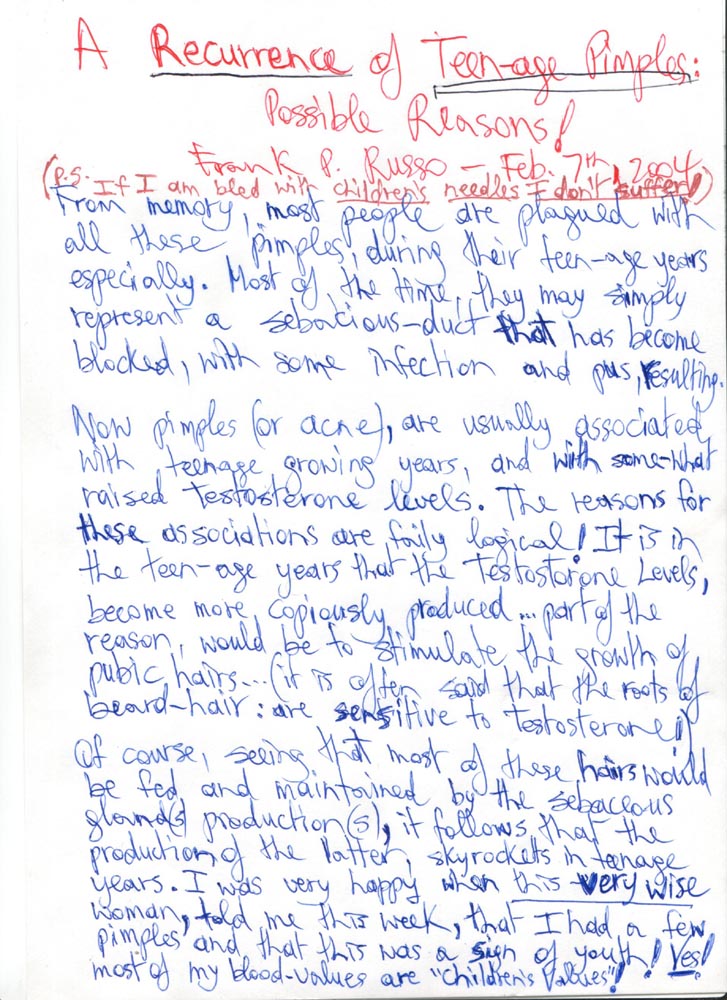 A Recurrence of Teen-age Pimples:
Possible Reasons!
Frank P. Russo — Feb. 7th, 2004
(P.S. If I am bled with children's needles I don't suffer!)
From memory, most people are plagued with
all these pimples, during their teen-age years
especially. Most of the time, they may simply
represent a sebacious-duct that has become
blocked, with some infection and pus, resulting.
Now pimples (or acne), are usually associated
with teenage growing years, and with some-what
raised testosterone levels. The reasons for
these associations are faily logical! It is in
the teen-age years that the Testostorone Levels,
become more copiously produced... part of the
reason, would be to stimulate the growth of
pubic hairs... (it is often said that the roots of
beard-hair: are sensitive to testosterone!)
Of course, seeing that most of these hairs would
be fed and maintained by the sebaceous
gland(s) production(s), it follows that the
production of the latter, skyrockets in teenage
years. I was very happy when this very wise
woman, told me this week, that I had a few
pimples and that this was a sign of youth! Yes!
most of my blood-values are "Children's Values"!